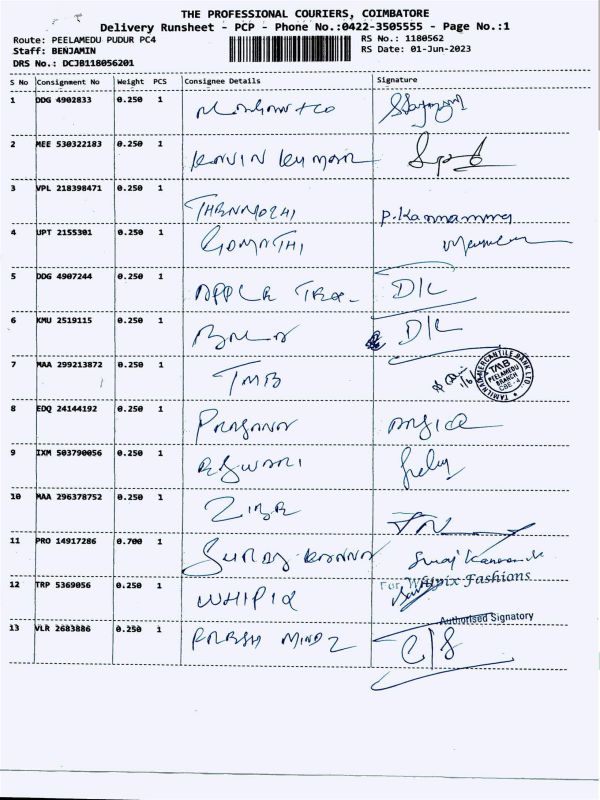 THE PROFESSIONAL COURIERS, COIMBATORE
Delivery Runsheet - PCP - Phone No.:0422-3505555 - Page No.:1
Route: PEELAMEDU PUDUR PC4 RS No.: 1180562
Staff: BENJAMIN RS Date: 01-Jun-2023
DRS No.: DCJB118056201
S No Consignment No Weight PCS Consignee Details Signature
1 DDG 4902833 0.250 1
2 MEE 530322183 0.250 1 KAVIN KUMAR
3 VPL 218398471 0.250 1 THENMOZHI P.Kannamma
4 UPT 2155301 0.250 1 GOMATHI
5 DDG 4907244 0.250 1 APPLE TREE D/L
6 KMU 2519115 0.250 1 D/L
7 MAA 299213872 0.250 1 TMB 1/6/
TAMILNAD MERCANTILE BANK LTD
TMB
PEELAMEDU
BRANCH
CBE - 4
8 EDQ 24144192 0.250 1 PRASANNA
9 IXM 503790056 0.250 1 ESWARI
10 MAA 296378752 0.250 1
11 PRO 14917286 0.700 1 SURAJ KANNA
12 TRP 5369056 0.250 1 For Whipix Fashions
Authorised Signatory
13 VLR 2683886 0.250 1